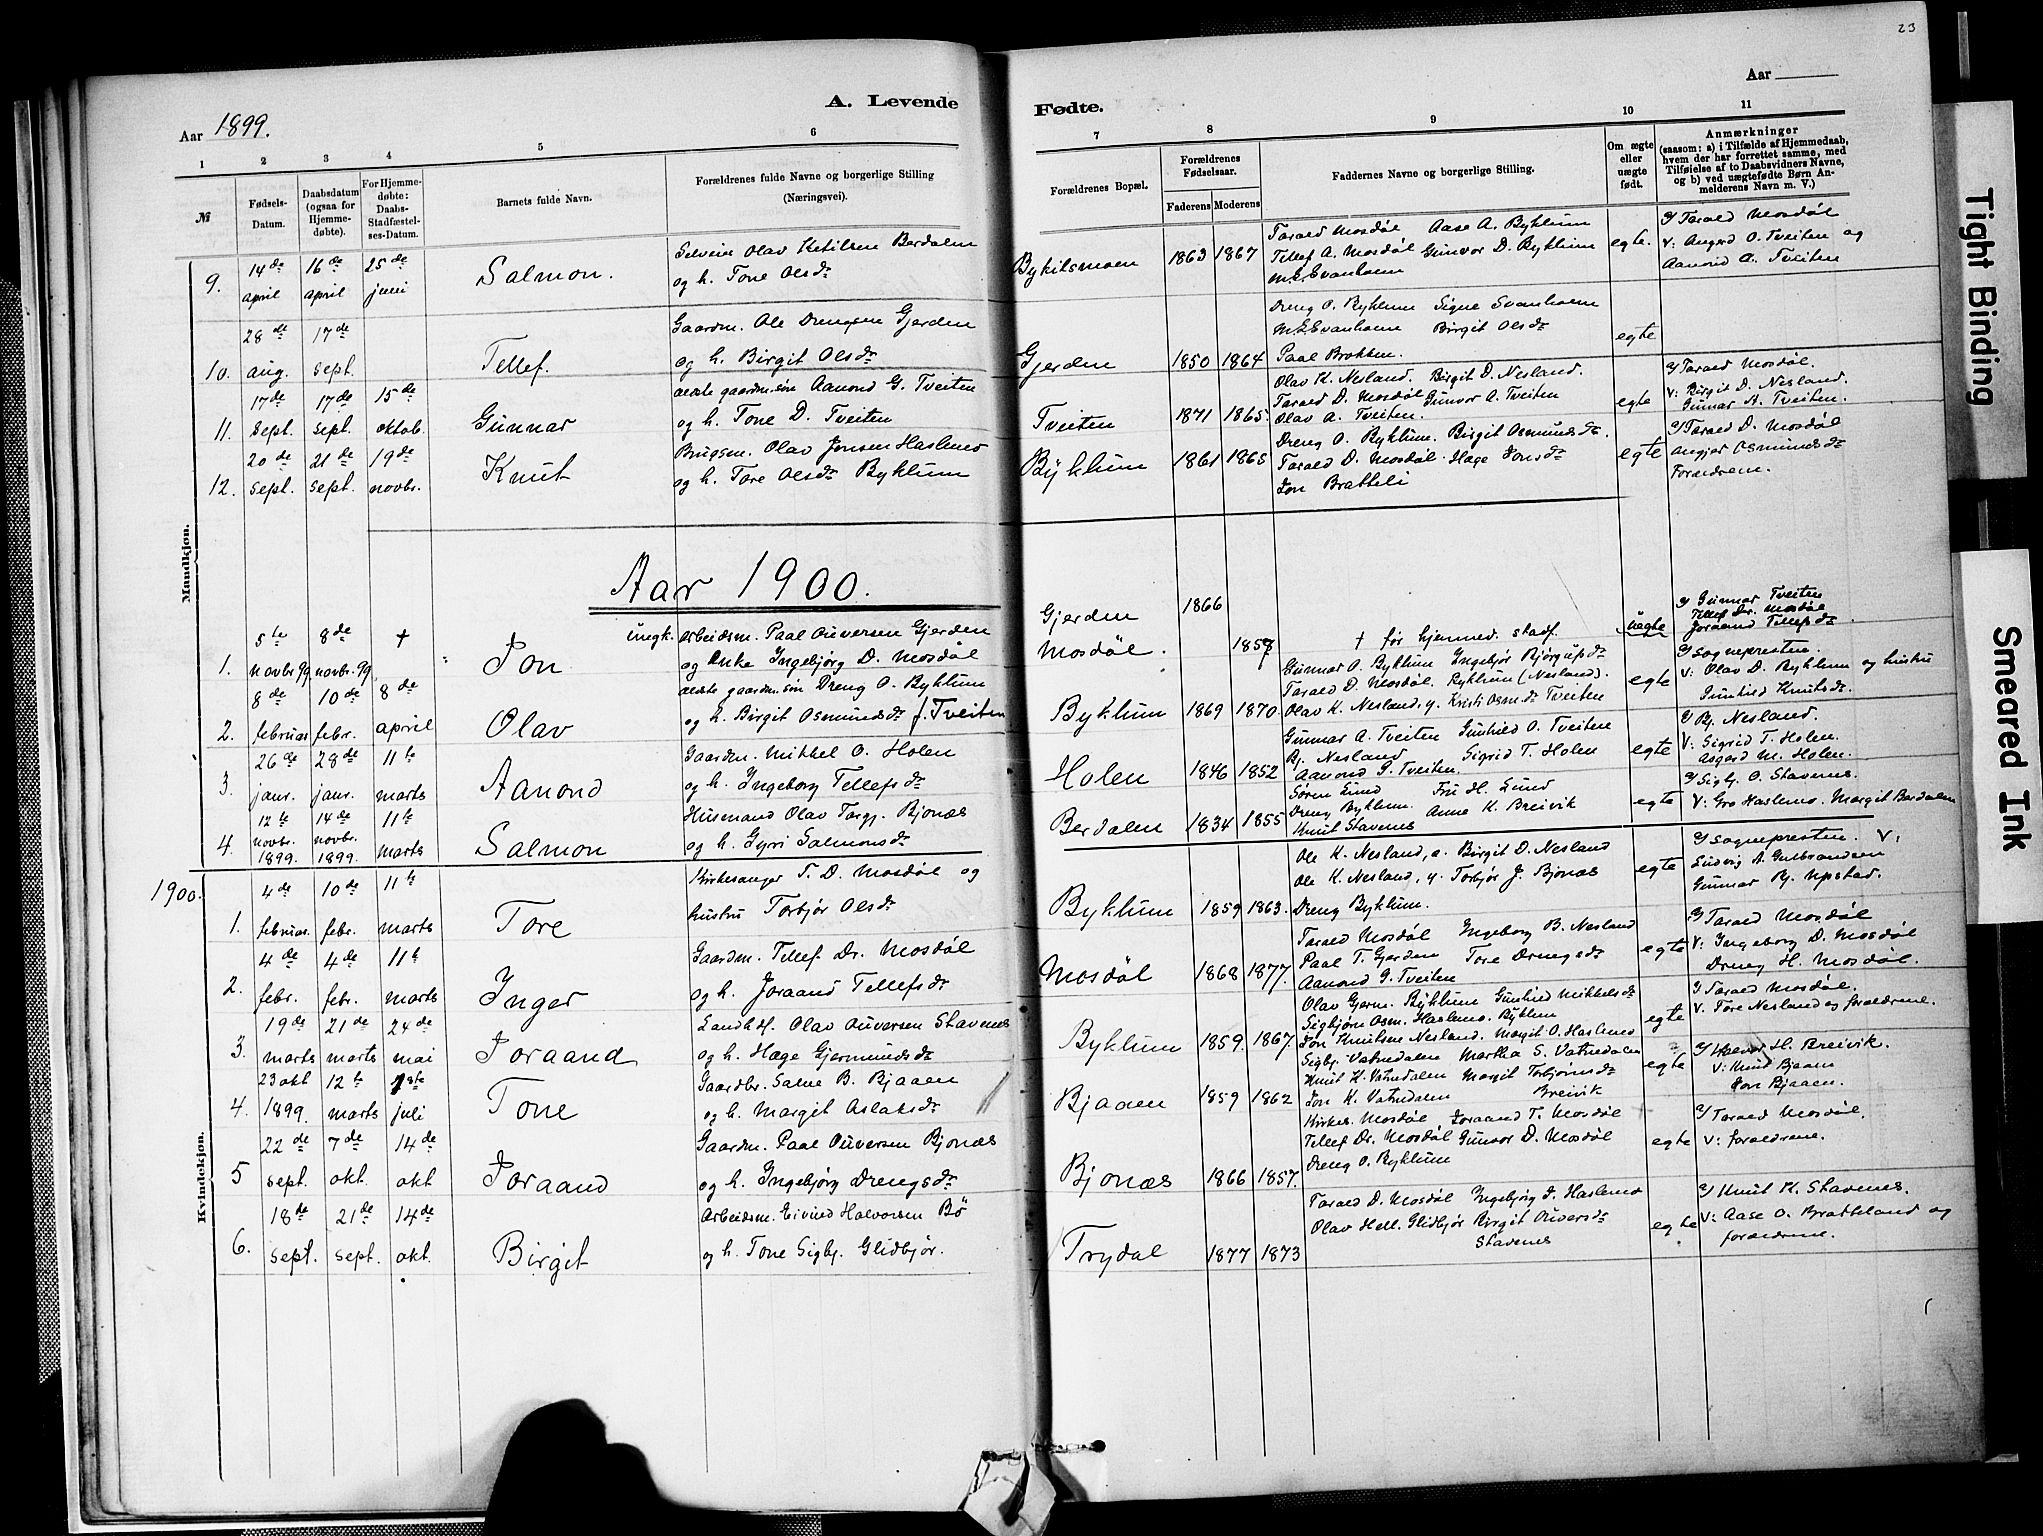 23
A. Levende
Fødte.
Aar 1899.
Aar
1 2 3 4 5 6 7 8 9 10 11
№
Fødsels-Datum.
Daabsdatum (ogsaa for Hjemme-døbte).
For Hjemme-døbte: Daabs-Stadfæstel-ses-Datum.
Barnets fulde Navn.
Forældrenes fulde Navne og borgerlige Stilling (Næringsvei).
Forældrenes Bopæl.
Forældrenes Fødselsaar.
Faderens Moderens
Faddernes Navne og borgerlige Stilling.
Om ægte eller uægte født.
Anmærkninger (saasom: a) i Tilfælde af Hjemmedaab, hvem der har forrettet samme, med Tilføielse af to Daabsvidners Navne, og b) ved uægtefødte Børn An-melderens Navn m. V.)
Mandkjøn.
9. 14de april 16de april 25de juni Salmon. Selveier Olav Ketilsen Berdalen og h. Tone Olsdr Bykilsmoen 1863 1867 Tarald Mosdøl Aase A. Byklum Tellef A. Mosdøl Gunvor D. Byklum M.E. Svanholm egte. Tarald Mosdøl V: Angerd O. Tveiten og Aanond A. Tveiten
10. 28de aug. 17de sept. Tellef. Gaardm. Ole Drengsen Gjerden og h. Birgit Olsdr Gjerden 1850 1864 Dreng O. Byklum Signe Svanholm M.E. Svanholm Birgit Olsdr Paal Brokken. egte
11. 17de sept. 17de sept. 15de oktob. Gunnar ældste gaardm.søn Aanond G. Tveiten og h. Tone D. Tveiten Tveiten 1871 1865. Olav K. Nesland. Birgit D. Nesland. Tarald D. Mosdøl Gunvor A. Tveiten Olav A. Tveiten. egte Tarald Mosdøl. V: Birgit D. Nesland. Gunnar A. Tveiten.
12. 20de sept. 21de sept. 19de novbr. Knut Brugsm. Olav Jonsen Haslemo og h. Tore Olsdr Byklum Byklum 1861 1865 Dreng O. Byklum. Birgit Osmundsdr. Tarald D. Mosdøl. Hæge Jonsdr Jon Bratteli egte Tarald D. Mosdøl Angjer Osmundsdr Forældrene.
Aar 1900.
1. 5te novbr 99 8de novbr. 99 † Jon ungk. Arbeidsm. Paal Ouversen Gjerden og Enke Ingebjørg D. Mosdøl Gjerden Mosdøl. 1866 1857 † før hjemmed. stadf. uegte Gunnar Tveiten Tellef Dr. Mosdøl Joraand Tellefsdr.
2. 8de februar 10de febr. 8de april Olav ældste gaardm.søn Dreng O. Byklum og h. Birgit Osmundsdr f. Tveiten Byklum 1869 1870 Gunnar O. Byklum Ingebjør Bjørgufsdr Tarald D. Mosdøl. Byklum (Nesland). Olav K. Nesland, y. Kristi Osm.dr Tveiten egte Sognepresten. V: Olav D. Byklum og hustru Gunhild Knutsdr.
3. 26de janr. 28de janr. 11te marts Aanond Gaardm. Mikkel O. Holen og h. Ingeborg Tellefsdr Holen 1846 1852 Gunnar A. Tveiten Gunhild O. Tveiten Bj. Nesland Sigrid T. Holen Aanond G. Tveiten. egte Bj. Nesland. V: Sigrid T. Holen. Asgerd M. Holen.
4. 12te novbr. 1899. 14de novbr. 1899. 11te marts Salmon Husmand Olav Targj. Bjones og h. Gyri Salmonsdr Berdalen 1834 1855 Søren Lund Fru H. Lund Dreng Byklum. Anne K. Breivik Knut Stavenes egte Sigbj. O. Stavenes. V: Gro Haslemo. Margit Berdalen
1900.
Kvindekjøn.
1. 4de februar. 10de febr. 11te marts Tore Kirkesanger T. D. Mosdøl og hustru Torbjør Olsdr Byklum 1859 1863. Ole K. Nesland, æ. Birgit D. Nesland Ole K. Nesland, y. Torbjør J. Bjones Dreng Byklum. egte Sognepresten. V: Ludvig A. Gulbrandsen Gunnar Bj. Upstad.
2. 4de febr. 4de febr. 11te marts Inger Gaardm. Tellef Dr. Mosdøl og h. Joraand Tellefsdr Mosdøl 1868 1877. Tarald Mosdøl Ingeborg B. Nesland Paal T. Gjerden Tore Drengsdr Aanond G. Tveiten egte Tarald Mosdøl V: Ingeborg D. Mosdøl Dreng H. Mosdøl.
3. 19de marts 21de marts 24de mai Joraand Landh. Olav Ouversen Stavenes og h. Hæge Gjermundsdr Byklum 1859. 1867. Olav Gjerm. Byklum Gunhild Mikkelsdr Sigbjørn Osm. Haslemo. Byklum Jon Knutsen Nesland. Margit O. Haslemo egte Tarald Mosdøl. V: Tore Nesland og forældrene.
4. 23 okt 1899. 12te marts 1ste juli Tone Gaardbr. Salve B. Bjaaen og h. Margit Aslaksdr Bjaaen 1859 1862 Sigbj. Vatnedalen Martha S. Vatnedalen Knut K. Vatnedalen Margit Torbjørnsdr Jon K. Vatndalen Breivik egte Halvor H. Breivik. V: Knut Bjaaen Jon Bjaaen.
5 22de sept. 7de okt. 14de okt Joraand Gaardm. Paal Ouversen Bjones og h. Ingebjørg Drengsdr Bjones 1866 1857. Kirkes. Mosdøl Joraand T. Mosdøl Tellef Dr. Mosdøl Gunvor D. Mosdøl Dreng O. Byklum egte Tarald Mosdøl. V: forældrene.
6. 18de sept. 21de sept. 14de okt. Birgit Arbeidsm. Eivind Halvorsen Bø og h. Tone Sigbj. Glidbjør. Trydal 1877 1873 Tarald D. Mosdøl Ingebjørg J. Haslemo Olav Hell. Glidbjør Birgit Ouversdr Stavenes egte Knut K. Stavenes. V: Aase O. Bratteland og forældrene.
Tight Binding
Smeared Ink